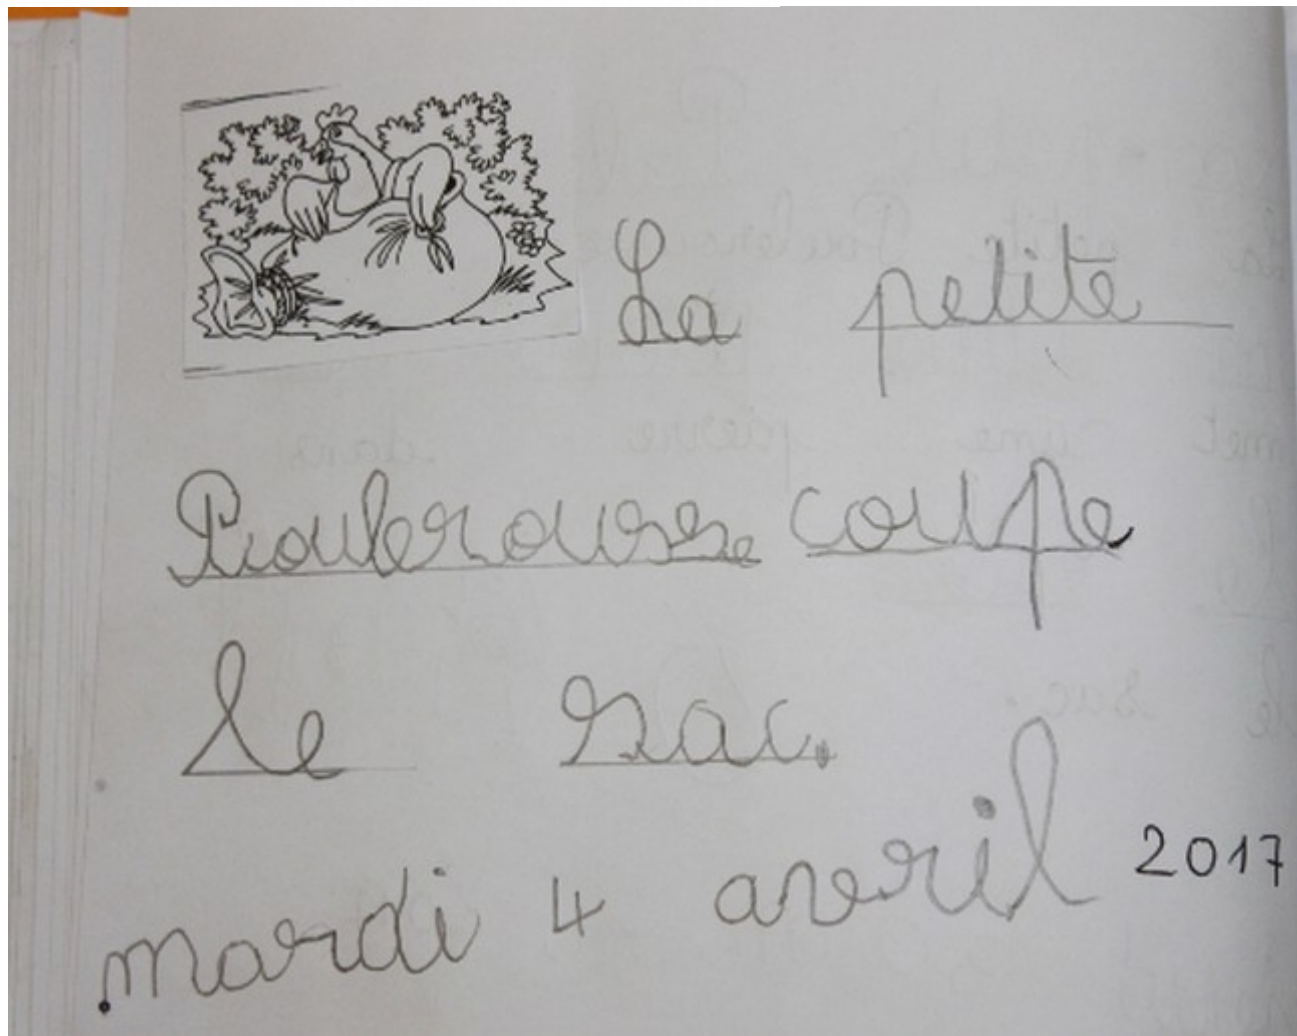 La petite
Poulerousse coupe
le sac.
mardi 4 avril 2017